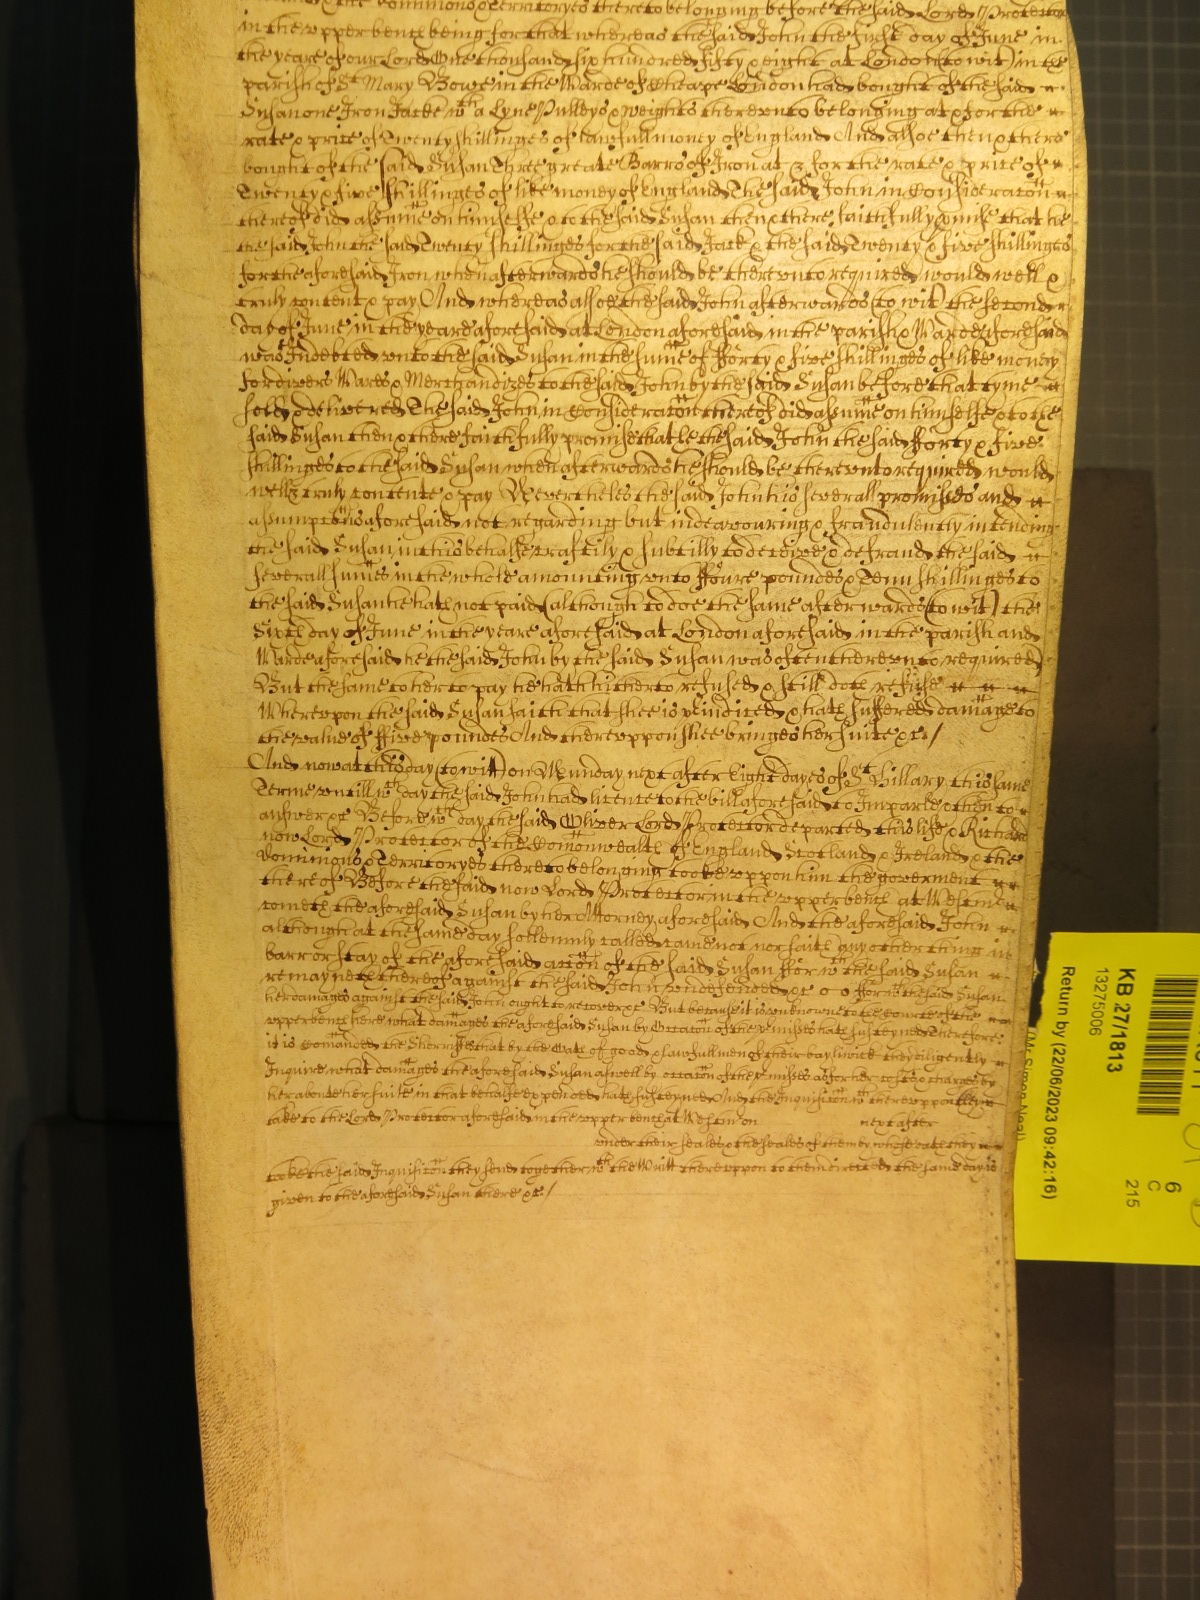 the Dominions & Territoryes thereto belonging before the said Lord Protector
in the vpper bench being for that whereas the said John the first day of June in
the yeare of our Lord One thousand six hundred fifty & eight at London (to wit) in the
parish of St Mary Bowe in the Warde of Cheape London had bought of the said
Susan one Iron Jacke wth a Lyne Pulleys & weights therevnto belonging at & for the
rate & price of Twenty shillinges of lawfull money of England And alsoe then & there
bought of the said Susan Three greate Barrs of Iron at & for the rate & price of
Twenty & five shillinges of like money of England The said John in Consideracon
thereof did assume on himselfe & to the said Susan then & there faithfully pmise that he
the said John the said Twenty shillinges for the said Jack & the said Twenty & five shillinges
for the aforesaid Iron when afterwards he should be therevnto required would well &
truly content & pay And whereas alsoe the said John afterwards (to wit) the second
day of June in the yeare aforesaid at London aforesaid in the parish & Warde aforesaid
was Indebted vnto the said Susan in the sume of fforty & five shillinges of like money
for divers Wares & Merchandizes to the said John by the said Susan before that tyme
sold & delivered The said John in Consideracon thereof did assume on himselfe & to the
said Susan then & there faithfully promise that he the said John the said fforty & five
shillinges to the said Susan when afterwards he should be therevnto required would
well & truly contente & pay Neverthelesse the said John his severall promisses and
assumpcons aforesaid not regarding but indeavouring & fraudulently intending
the said Susan in this behalfe craftily & subtilly to deceive & defraud the said
severall sumes in the whole amounting vnto ffoure poundes & Tenn shillinges to
the said Susan he hath not paid (although to doe the same afterwards (to wit) the
Sixth day of June in the yeare aforesaid at London aforesaid in the parish and
Warde aforesaid he the said John by the said Susan was often therevnto required)
But the same to her to pay he hath hitherto refused & still doth refuse
Wherevpon the said Susan saith that shee is pjudiced & hath suffered damage to
the value of ffive poundes And therevppon shee bringes her suite &c /
And now at this day (to witt) on Munday next after Eight dayes of St Hillary this same
Terme vntill wch day the said John had licence to the bill aforesaid to Imparle & then to
answer &c Before wch day the said Oliver Lord Protector departed this life & Richard
now Lord Protector of the Comonwealth of England Scotland & Ireland & the
Dominions & Territoryes thereto belonging tooke vppon him the goverment
thereof Before the said now Lord Protector in the vpper bench at Westmr
cometh the aforesaid Susan by her Attorney aforesaid And the aforesaid John
although at the same day sollemnly called came not nor saith any other thing in
barr or stay of the accon aforesaid of the said Susan ffor wch the said Susan
remayneth thereof against the said John vndefended &c ffor wch the said Susan
her damages against the said John ought to recover &c But because it is vnknowne to the Courte of the
vpper bench here what damages the aforesaid Susan by Occacon of the pmisses hath susteyned Therefore
it is Comanded the Sherriffes that by the Oath of good & lawfull men of their bayliwick they diligently
Inquire what damages the aforesaid Susan aswell by occacon of the pmisses as for her costs & charges by
her aboute her suite in that behalfe expended hath susteyned And the Inquisicon wch therevppon they
take to the Lord Protector aforesaid in the vpper bench at Westmr on next after
vnder their seales & the seales of them by whose oath they
tooke the said Inquisicon they send together wth the Writt therevppon to them directed the same day is
given to the aforesaid Susan there &c /
KB 27/1813
13275006
Return by (22/06/2023 09:42:16)
6
C
215